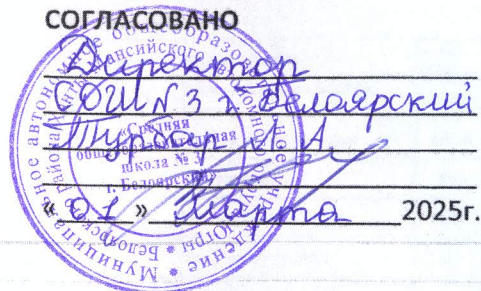 СОГЛАСОВАНО
Директор
СОШ №3 г. Белоярский
А.А.
«01» марта 2025г.
Муниципальное автономное общеобразовательное учреждение
Белоярского района Ханты-Мансийского автономного округа
Югры
«Средняя
общеобразовательная
школа № 3
г. Белоярский»